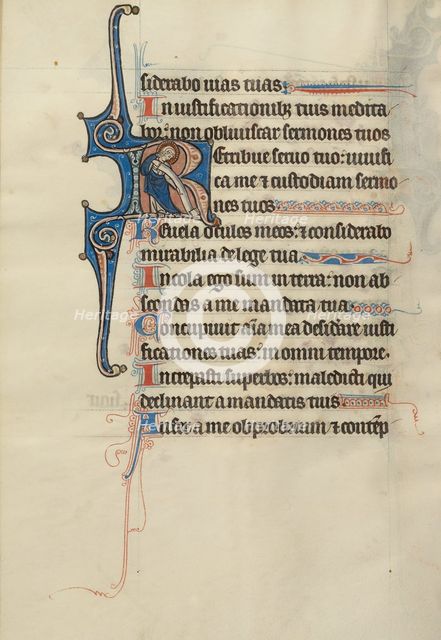 siderabo uias tuas
In iustificationibꝫ tuis medita
bor: non obliuiscar sermones tuos
Retribue seruo tuo: uiuifi
ca me ⁊ custodiam sermo
nes tuos
Reuela oculos meos: ⁊ considerabo
mirabilia de lege tua
Incola ego sum in terra: non ab
scondas a me mandata tua
Concupiuit aīa mea desidare iusti
ficationes tuas: in omni tempore.
Increpasti superbos: maledicti qui
declinant a mandatis tuis
Aufer a me obprobrium ⁊ contēp
Heritage
Heritage
Heritage
Heritage
Heritage
Heritage